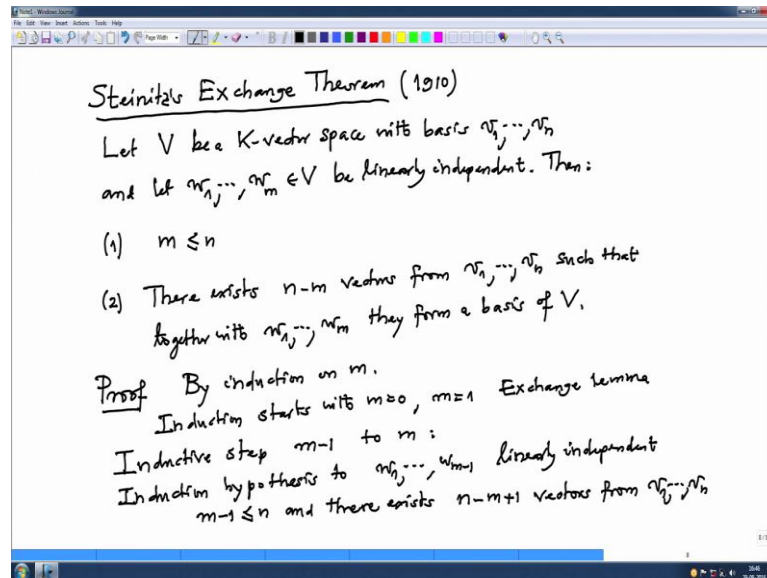 Note1 - Windows Journal
File Edit View Insert Actions Tools Help
Page Width
Steinitz's Exchange Theorem (1910)
Let V be a K-vector space with basis v₁,...,vₙ
and let w₁,...,wₘ ∈ V be linearly independent. Then:
(1) m ≤ n
(2) There exists n-m vectors from v₁,...,vₙ such that
together with w₁,...,wₘ they form a basis of V.
Proof By induction on m.
Induction starts with m=0, m=1 Exchange lemma
Inductive step m-1 to m:
Induction hypothesis to w₁,...,wₘ₋₁ linearly independent
m-1 ≤ n and there exists n-m+1 vectors from v₁,...,vₙ
8/8
8
16:46